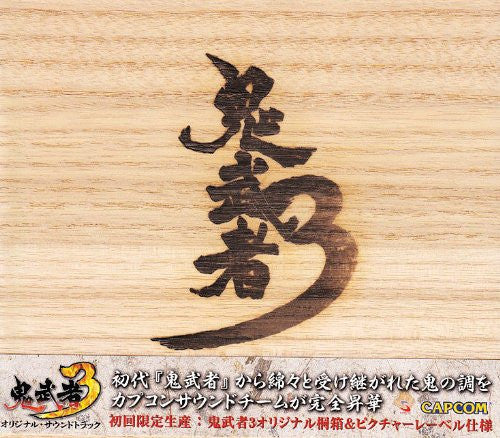 鬼武者3
鬼武者3
オリジナル・サウンドトラック
初代『鬼武者』から綿々と受け継がれた鬼の調を
カプコンサウンドチームが完全昇華
初回限定生産:鬼武者3オリジナル桐箱&ピクチャーレーベル仕様
CAPCOM